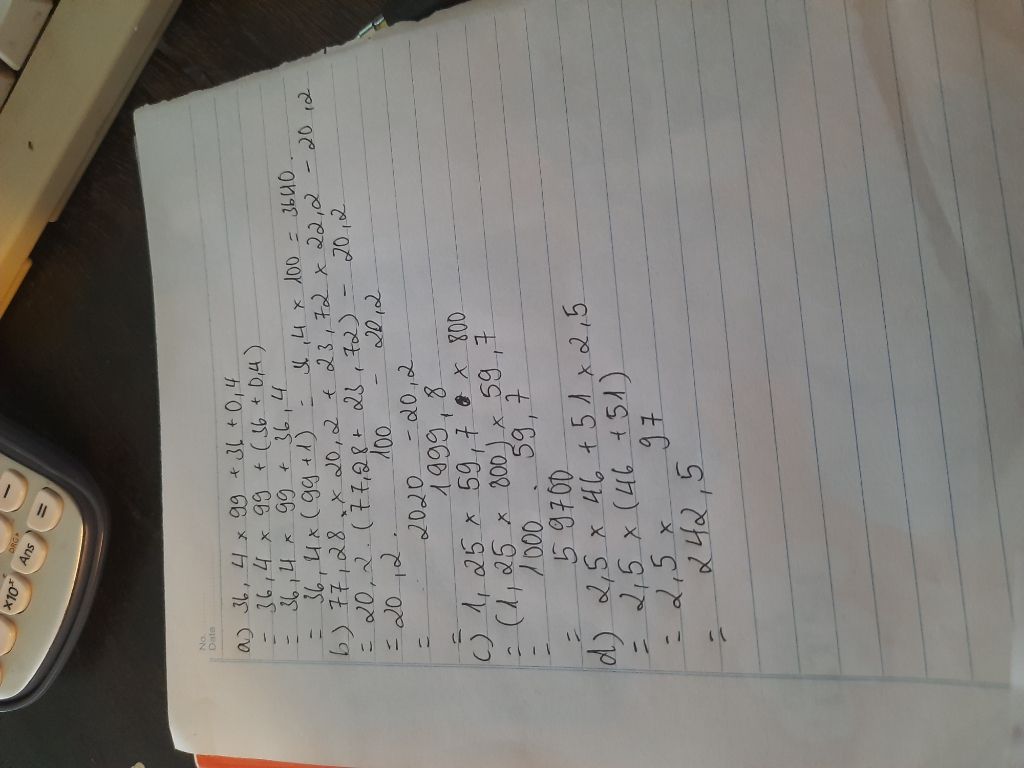 No.
Date
a) 36,4 x 99 + 36 + 0,4
= 36,4 x 99 + (36 + 0,4)
= 36,4 x 99 + 36,4
= 36,4 x (99 + 1) = 36,4 x 100 = 3640.
b) 77,28 x 20,2 + 23,72 x 22,2 - 20,2
= 20,2 . (77,28 + 23,72) - 20,2
= 20,2 . 100 - 20,2
= 2020 - 20,2
= 1999,8
c) 1,25 x 59,7 x 800
= (1,25 x 800) x 59,7
= 1000 . 59,7
= 59700
d) 2,5 x 46 + 51 x 2,5
= 2,5 x (46 + 51)
= 2,5 x 97
= 242,5
-
=
x10ˣ
Ans